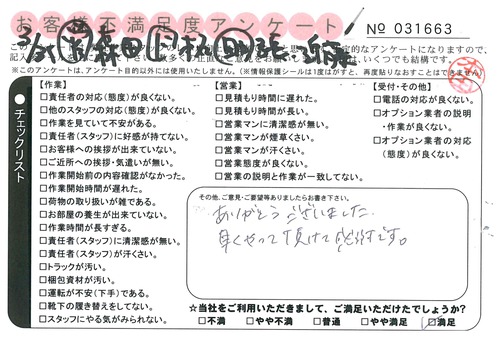 お客様不満足度アンケート
No 031663
【作業】
□責任者の対応(態度)が良くない。
□他のスタッフの対応(態度)が良くない。
□作業を見ていて不安がある。
□責任者(スタッフ)に好感が持てない。
□お客様への挨拶が出来ていない。
□ご近所への挨拶・気遣いが無い。
□作業開始前の内容確認がなかった。
□作業開始時間が遅れた。
□荷物の取り扱いが雑である。
□お部屋の養生が出来ていない。
□作業時間が長すぎる。
□責任者(スタッフ)に清潔感が無い。
□責任者(スタッフ)が汗くさい。
□トラックが汚い。
□梱包資材が汚い。
□運転が不安(下手)である。
□靴下の履き替えをしてない。
□スタッフにやる気がみられない。
【営業】
□見積もり時間に遅れた。
□見積もり時間が長い。
□営業マンに清潔感が無い。
□営業マンが煙草くさい。
□営業マンが汗くさい。
□営業態度が良くない。
□営業の説明と作業が一致してない。
【受付・その他】
□電話の対応が良くない。
□オプション業者の説明
・作業が良くない。
□オプション業者の対応
(態度)が良くない。
チェックリスト
その他、ご意見・ご要望等ありましたらお書き下さい。
ありがとうございました。
早くやって頂けて感謝です。
☆当社をご利用いただきまして、ご満足いただけたでしょうか?
□不満 □やや不満 □普通 □やや満足 □満足